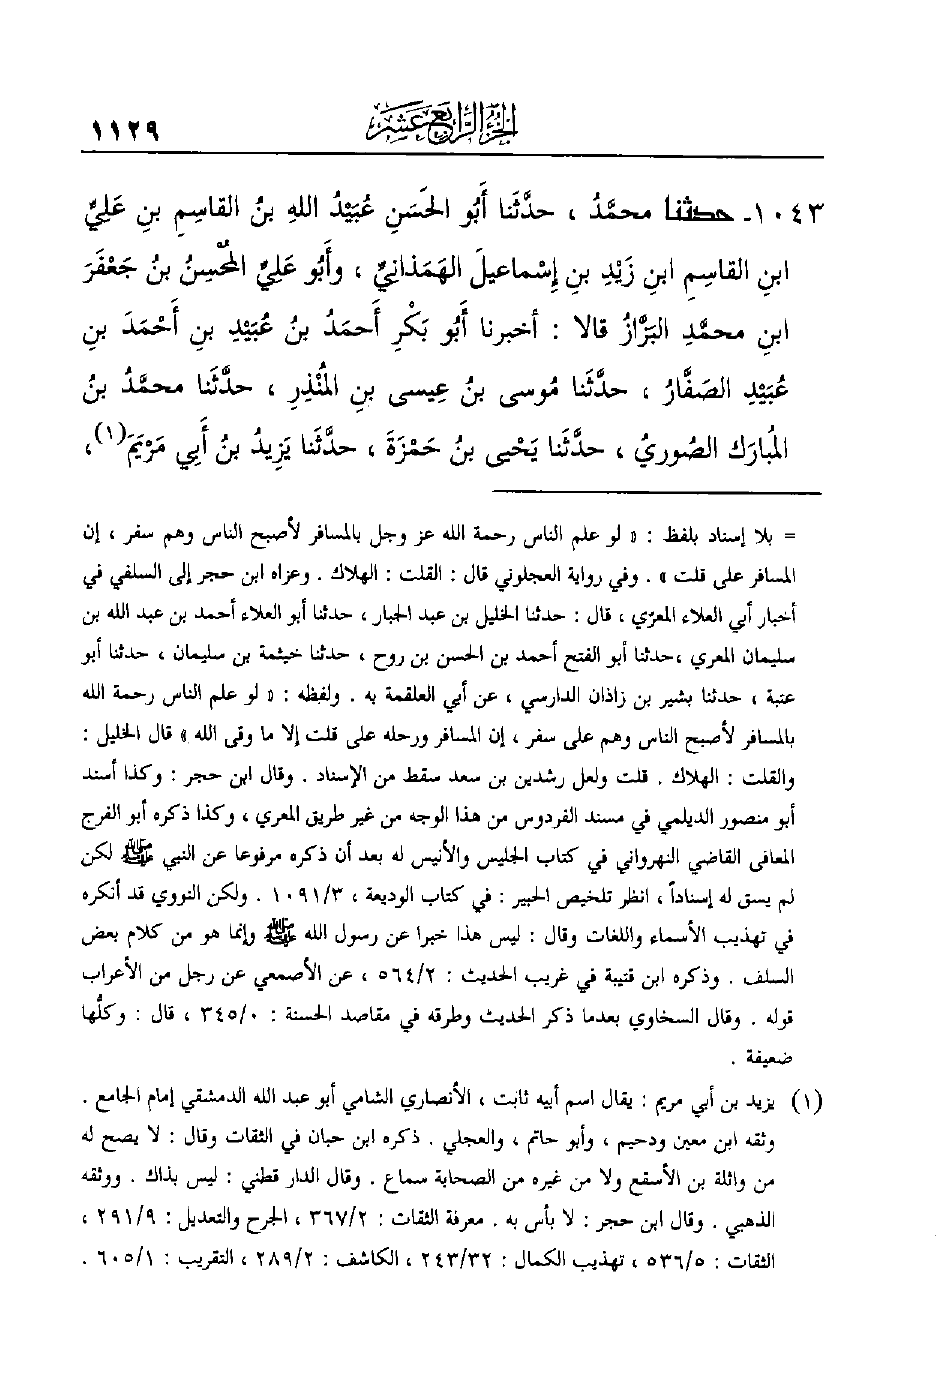 الجزء الرابع عشر
١١٢٩
١٠٤٣ـ حدثنا محمَّدُ ، حدَّثَنا أَبُو الحَسَنِ عُبَيْدُ اللهِ بنُ القاسِمِ بنِ عَلِيِّ
ابنِ القاسِمِ ابنِ زَيْدِ بنِ إِسْماعيلَ الهَمَذانِيِّ ، وأَبُو عَلِيٍّ المُحْسِنُ بنُ جَعْفَرَ
ابنِ محمَّدِ البَزَّازُ قالا : أخبرنا أَبُو بَكْرِ أَحمَدُ بنُ عُبَيْدِ بنِ أَحْمَدَ بنِ
عُبَيْدِ الصَفَّارُ ، حدَّثَنا مُوسى بنُ عِيسى بنِ المُنْذِرِ ، حدَّثَنا محمَّدُ بنُ
المُبارَك الصُورِيُ ، حدَّثَنا يَحْيى بنُ حَمْزَةَ ، حدَّثَنا يَزِيدُ بنُ أَبي مَرْيَمَ(١)،
= بلا إسناد بلفظ : « لو علم الناس رحمة الله عز وجل بالمسافر لأصبح الناس وهم سفر ، إن
المسافر على قلت » . وفي رواية العجلوني قال : القلت : الهلاك . وعزاه ابن حجر إلى السلفي في
أخبار أبي العلاء المعرّي ، قال : حدثنا الخليل بن عبد الجبار ، حدثنا أبو العلاء أحمد بن عبد الله بن
سليمان المعري ،حدثنا أبو الفتح أحمد بن الحسن بن روح ، حدثنا خيثمة بن سليمان ، حدثنا أبو
عتبة ، حدثنا بشير بن زاذان الدارسي ، عن أبي العلقمة به . ولفظه : « لو علم الناس رحمة الله
بالمسافر لأصبح الناس وهم على سفر ، إن المسافر ورحله على قلت إلا ما وقى الله » قال الخليل :
والقلت : الهلاك . قلت ولعل رشدين بن سعد سقط من الإسناد . وقال ابن حجر : وكذا أسند
أبو منصور الديلمي في مسند الفردوس من هذا الوجه من غير طريق المعري ، وكذا ذكره أبو الفرج
المعافى القاضي النهرواني في كتاب الجليس والأنيس له بعد أن ذكره مرفوعا عن النبي ﷺ لكن
لم يسق له إسناداً ، انظر تلخيص الحبير : في كتاب الوديعة ، ١٠٩١/٣ . ولكن النووي قد أنكره
في تهذيب الأسماء واللغات وقال : ليس هذا خبرا عن رسول الله ﷺ وإنما هو من كلام بعض
السلف . وذكره ابن قتيبة في غريب الحديث : ٥٦٤/٢ ، عن الأصمعي عن رجل من الأعراب
قوله . وقال السخاوي بعدما ذكر الحديث وطرقه في مقاصد الحسنة : ٣٤٥/٠ ، قال : وكلُّها
ضعيفة .
(١) يزيد بن أبي مريم : يقال اسم أبيه ثابت ، الأنصاري الشامي أبو عبد الله الدمشقي إمام الجامع .
وثقه ابن معين ودحيم ، وأبو حاتم ، والعجلي . ذكره ابن حبان في الثقات وقال : لا يصح له
من واثلة بن الأسقع ولا من غيره من الصحابة سماع . وقال الدار قطني : ليس بذاك . ووثقه
الذهبي . وقال ابن حجر : لا بأس به . معرفة الثقات : ٣٦٧/٢ ، الجرح والتعديل : ٢٩١/٩ ،
الثقات : ٥٣٦/٥ ، تهذيب الكمال : ٢٤٣/٣٢ ، الكاشف : ٢٨٩/٢ ، التقريب : ٦٠٥/١ .